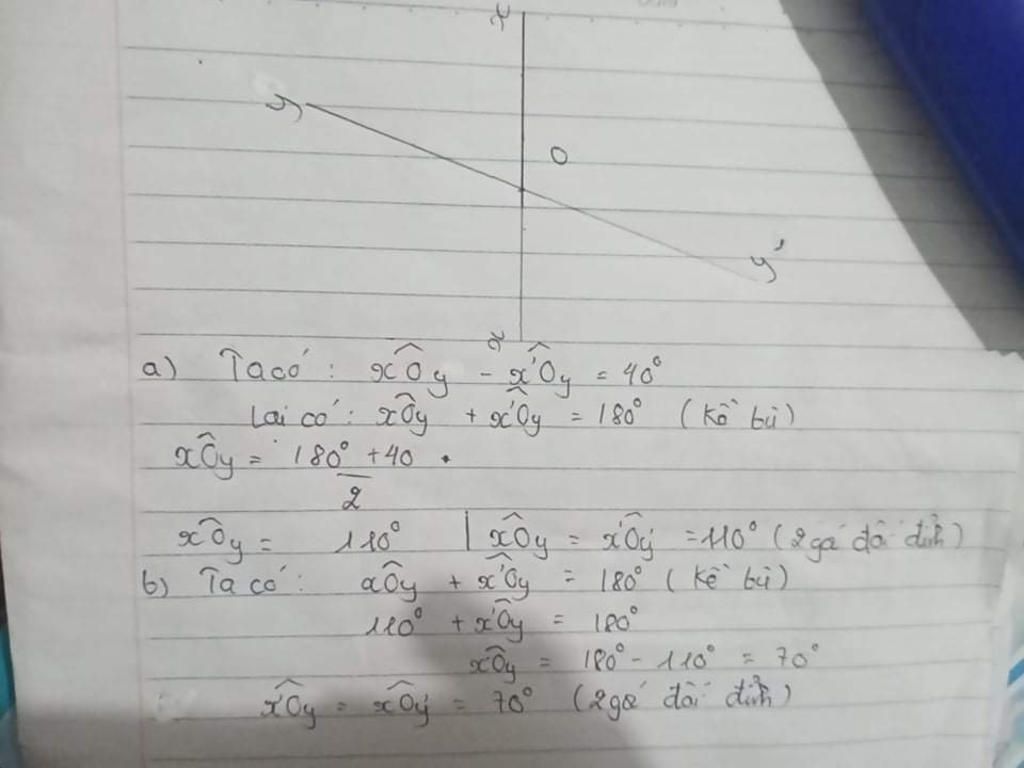 x
y
O
y'
x
a) Ta có: xÔy - x'Ôy = 40°
Lại có: xÔy + x'Ôy = 180° (kề bù)
xÔy = 180° + 40 .
2
xÔy = 110° | xÔy = x'Ôy' = 110° (2 gó đối đỉnh)
b) Ta có: xÔy + x'Ôy = 180° (kề bù)
110° + x'Ôy = 180°
xÔy = 180° - 110° = 70°
x'Ôy = xÔy' = 70° (2 gó đối đỉnh)